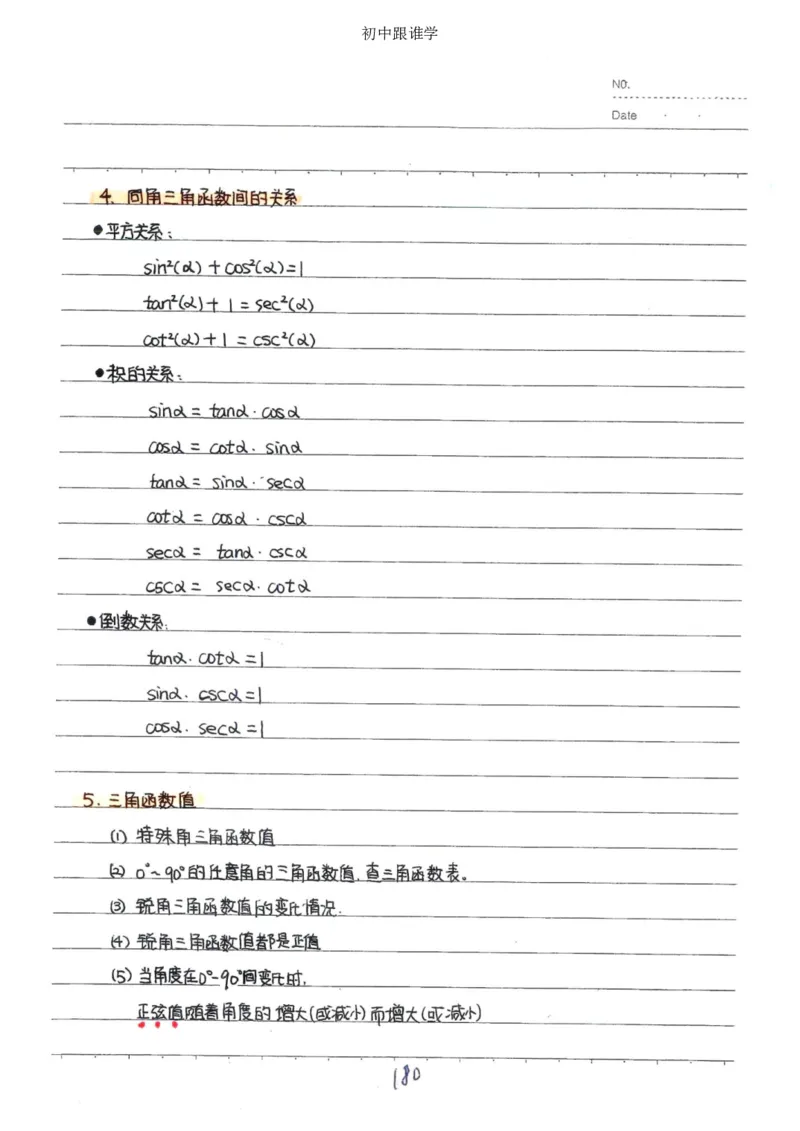 初中跟谁学
NO.
Date
4. 同角三角函数间的关系
●平方关系:
sin²(α)+cos²(α)=1
tan²(α)+1=sec²(α)
cot²(α)+1=csc²(α)
●积的关系:
sinα=tanα·cosα
cosα=cotα·sinα
tanα=sinα·secα
cotα=cosα·cscα
secα=tanα·cscα
cscα=secα·cotα
●倒数关系:
tanα·cotα=1
sinα·cscα=1
cosα·secα=1
5. 三角函数值
(1) 特殊角三角函数值
(2) 0°~90°的任意角的三角函数值,查三角函数表。
(3) 锐角三角函数值的变化情况.
(4) 锐角三角函数值都是正值
(5) 当角度在0°~90°间变化时,
正弦值随着角度的增大(或减小)而增大(或减小)
180